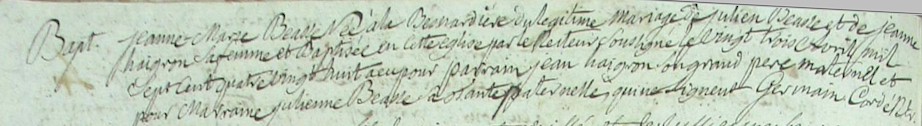 Bapt. jeanne Marie Beasse Née à la Besnardiére du legitime mariage de julien Beasse et de jeanne
haigron sa femme et Baptisée en cette eglise par le Recteur soussigné le vingt trois avril mil
sept cent quatre vingt huit a eu pour parrain jean haigron son grand pere maternel et
pour Marraine julienne Beasse sa tante paternelle, qui ne signent Germain Cordé